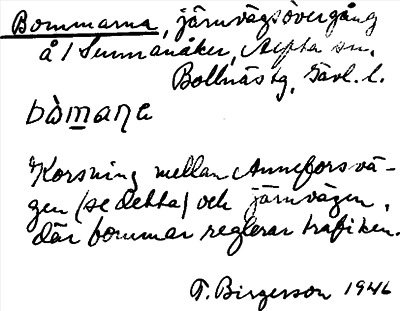 Bommarna, järnvägsövergång
å/Sunnanåker, Alfta sn.
Bollnästg, Gävl. l.
bòmaɳa
Korsning mellan Anneforsvä-
gen (se detta) och järnvägen,
där bommar reglerar trafiken.
F. Birgerson 1946